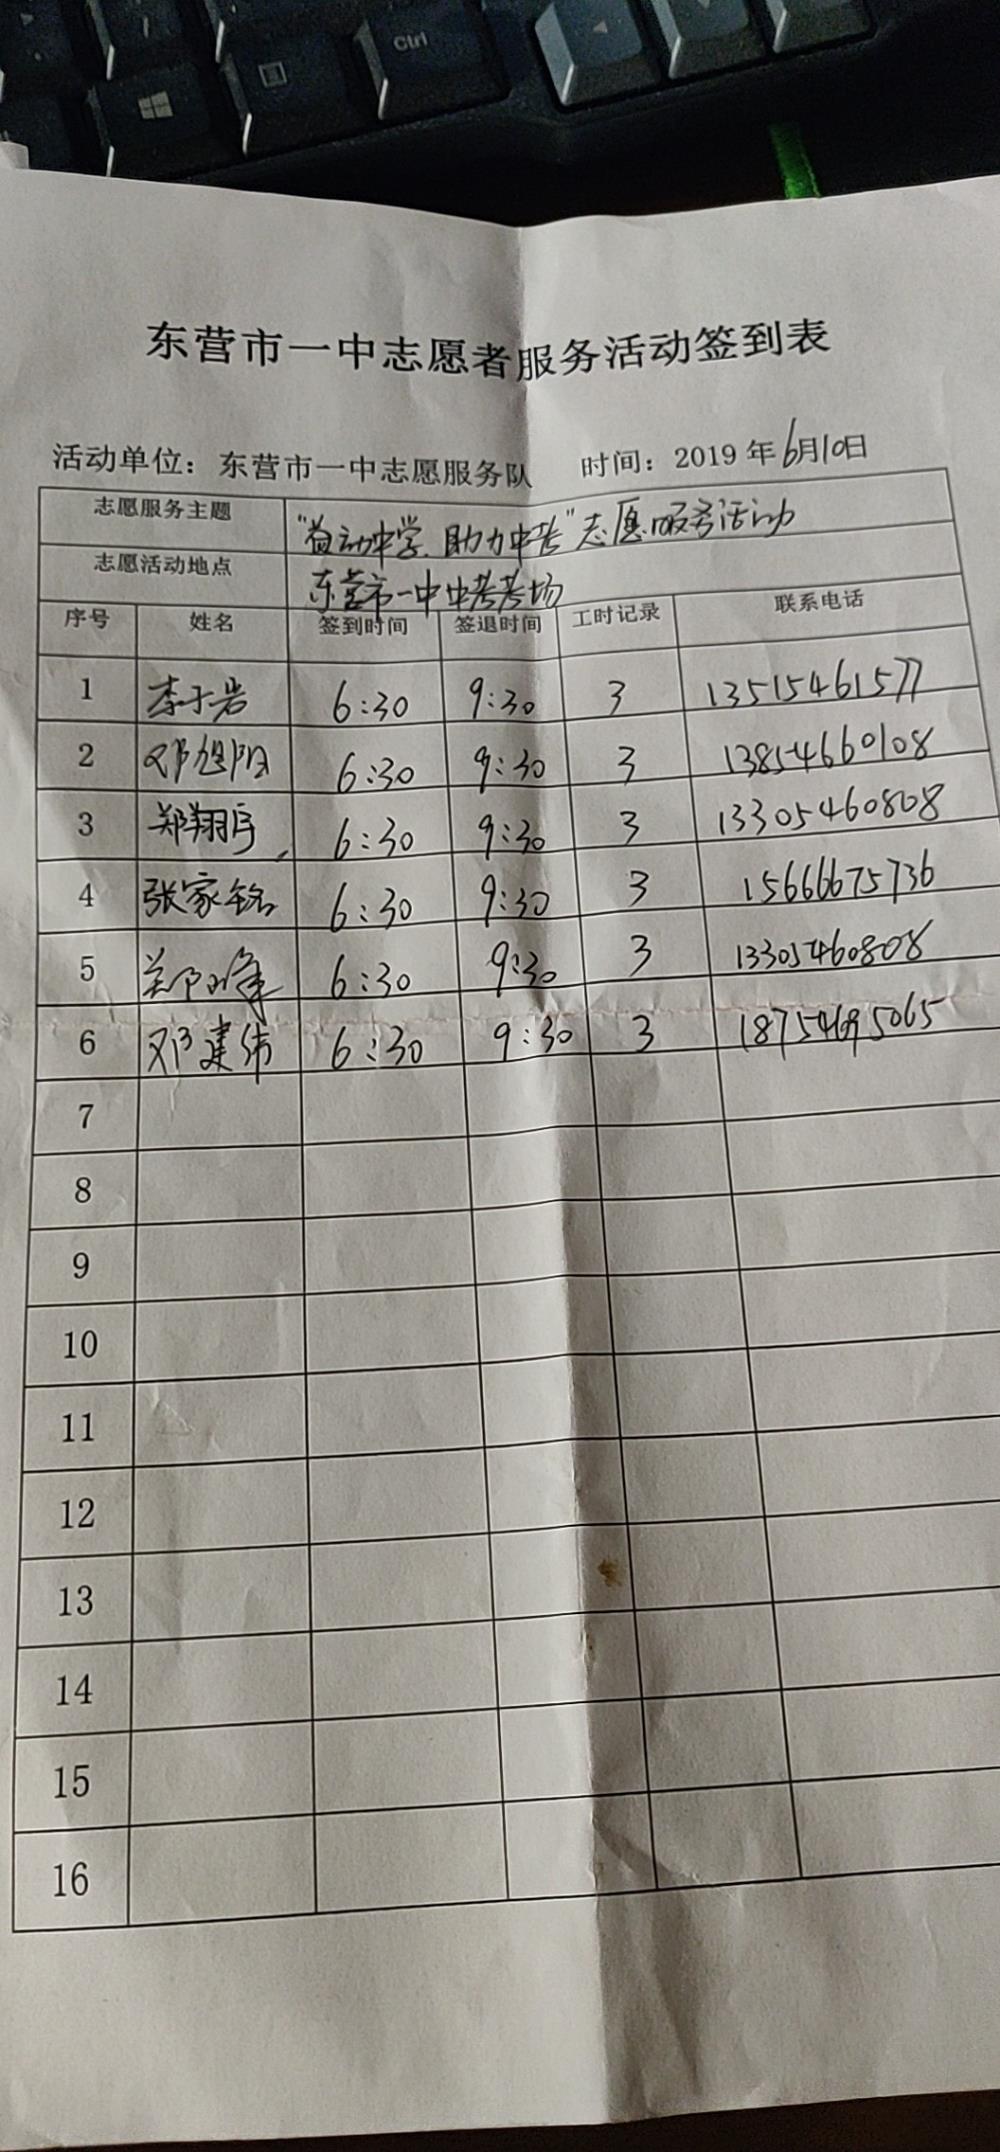 Ctrl
东营市一中志愿者服务活动签到表
活动单位：东营市一中志愿服务队 时间：2019年6月10日
志愿服务主题 “益动中学，助力中考”志愿服务活动
志愿活动地点 东营市一中中考考场
序号 姓名 签到时间 签退时间 工时记录 联系电话
1 李子岩 6:30 9:30 3 13515461577
2 邓旭阳 6:30 9:30 3 13854660108
3 郑翔宇 6:30 9:30 3 13305460808
4 张家铭 6:30 9:30 3 15666675736
5 6:30 9:30 3 13305460808
6 邓建伟 6:30 9:30 3 18754695065
7
8
9
10
11
12
13
14
15
16